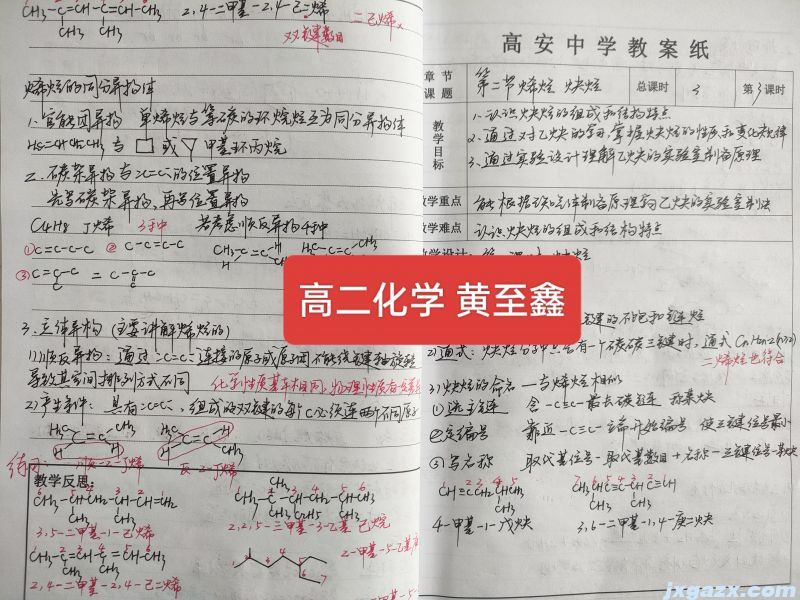 CH₃-C=CH-C=CH-CH₃
CH₃ CH₃
2,4-二甲基-2,4-己二烯
二己烯×
双键数目
烯烃的同分异构体
1.官能团异构 单烯烃与等碳的环烷烃互为同分异构体
与 □ 或 甲基环丙烷
2.碳架异构与 >C=C< 的位置异构
先写碳架异构,再写位置异构
C4H8 丁烯 3种 若考虑顺反异构4种
①C=C-C-C ②C-C=C-C
③C=C-C = C-C-C
3.立体异构(主要讲解烯烃的)
1)顺反异构:通过 >C=C< 连接的原子或原子团不能绕键轴旋转
导致其空间排列方式不同 化学性质基本相同,物理性质有
2)产生条件:具有 >C=C<,组成的双键的每个C必须连两个不同原子
顺-2-丁烯 反-2-丁烯
练习:
教学反思:
3,5-二甲基-1-己烯
2,2,5-三甲基-3-乙基己烷
CH₃-C=CH-C=CH-CH₃
CH₃ CH₃
2,4-二甲基-2,4-己二烯
2-甲基-5-乙基
高安中学教案纸
章节
课题
第二节 烯烃 炔烃
总课时
3
第3课时
教学目标
1.认识炔烃的组成和结构特点
2.通过对乙炔的学习,掌握炔烃的性质和变化规律
3.通过实验设计理解乙炔的实验室制备原理
教学重点
能根据 气体制备原理 乙炔的实验室制法
教学难点
认识炔烃的组成和结构特点
教学设计:
高二化学 黄至鑫
键的不饱和链烃
2)通式:炔烃分子中含有一个碳碳三键时,通式CnH2n-2(n≥2)
二烯烃也符合
3)炔烃的命名—与烯烃相似
①选主链 含-C≡C-最长碳链 称某炔
②定编号 靠近-C≡C-一端开始编号 使三键位号最小
③写名称 取代基位号-取代基数目+名称-三键位号-某炔
4-甲基-1-戊炔
3,6-二甲基-1,4-庚二炔
jxgazx.com